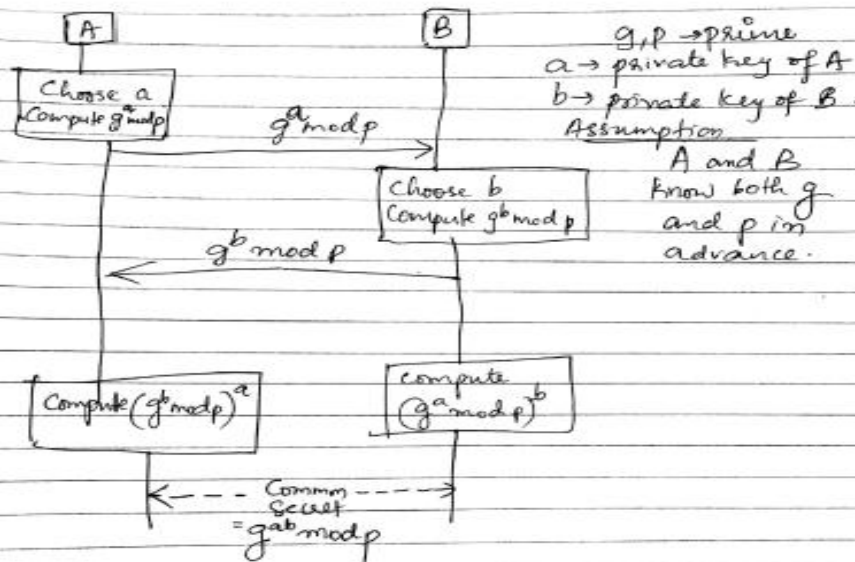 A
B
g, p → prime
a → private key of A
b → private key of B
Assumption
A and B
know both g
and p in
advance.
Choose a
Compute gᵃmodp
gᵃmodp
Choose b
Compute gᵇmodp
gᵇ mod p
Compute (gᵇmodp)ᵃ
compute
(gᵃmodp)ᵇ
Common
secret
= gᵃᵇmodp